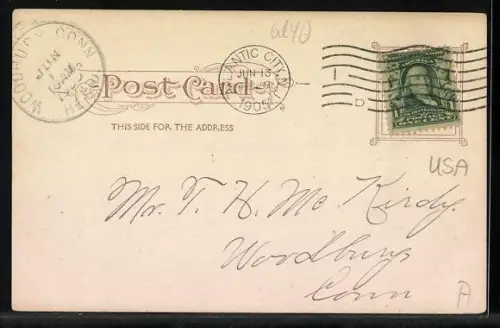 al40
WOODBURY, CONN
JUN
1905
ATLANTIC CITY, N.J.
JUN 13
1905
1
D
Post Card.
THIS SIDE FOR THE ADDRESS
USA
Mr. T. H. Mc Kirdy.
Woodbury
Conn
A